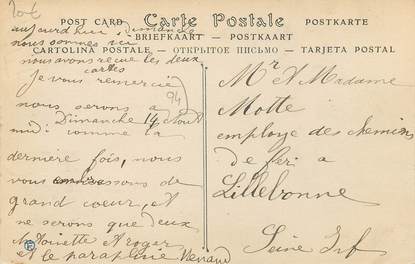 20€
POST CARD Carte Postale POSTKARTE
BRIEFKAART - POSTKAART
CARTOLINA POSTALE - ОТКРЫТОЕ ПИСЬМО - TARJETA POSTAL
aujourd'hui dimanche
nous sommes ici
nous avons reçue les deux
cartes
je vous remercie
94
nous serons a
Dimanche 14 Aout
midi comme la
dernière fois, nous
vous embrassons de
grand coeur, et
ne serons que deux
Antoinette et roger
et le parapluie Renard
Mr et Madame
Motte
employe des chemins
de fer a
Lillebonne
Seine Inf